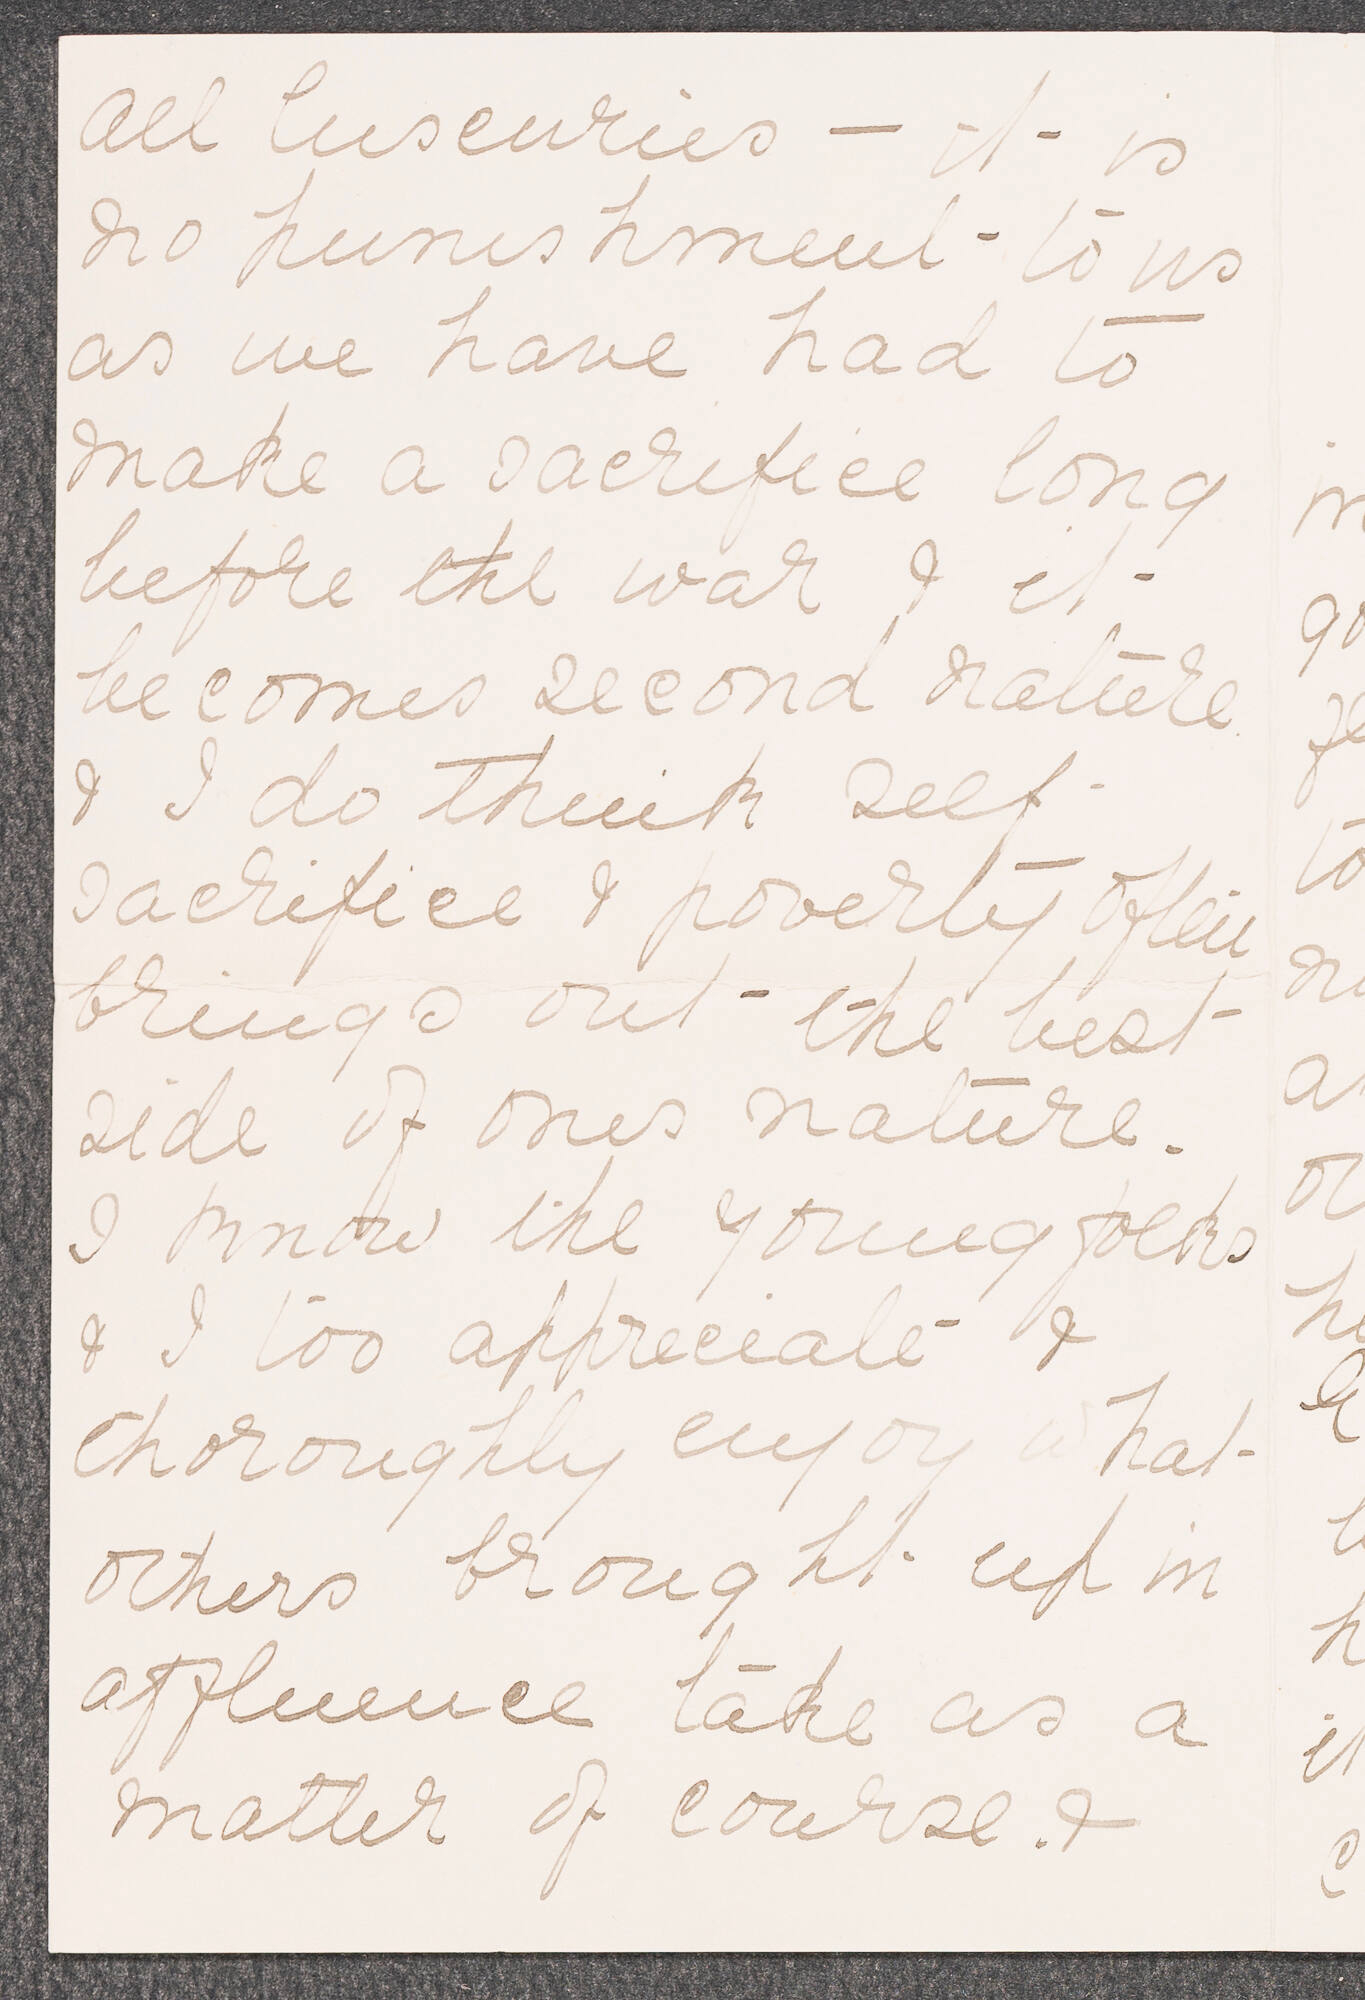 all luxuries — it is
no punishment - to us
as we have had to
make a sacrifice long
before the war & it
becomes second nature
& I do think self-
sacrifice & poverty often
brings out the best
side of ones nature.
I know the young folks
& I too appreciate &
thoroughly enjoy what
others brought up in
affluence take as a
matter of course. &